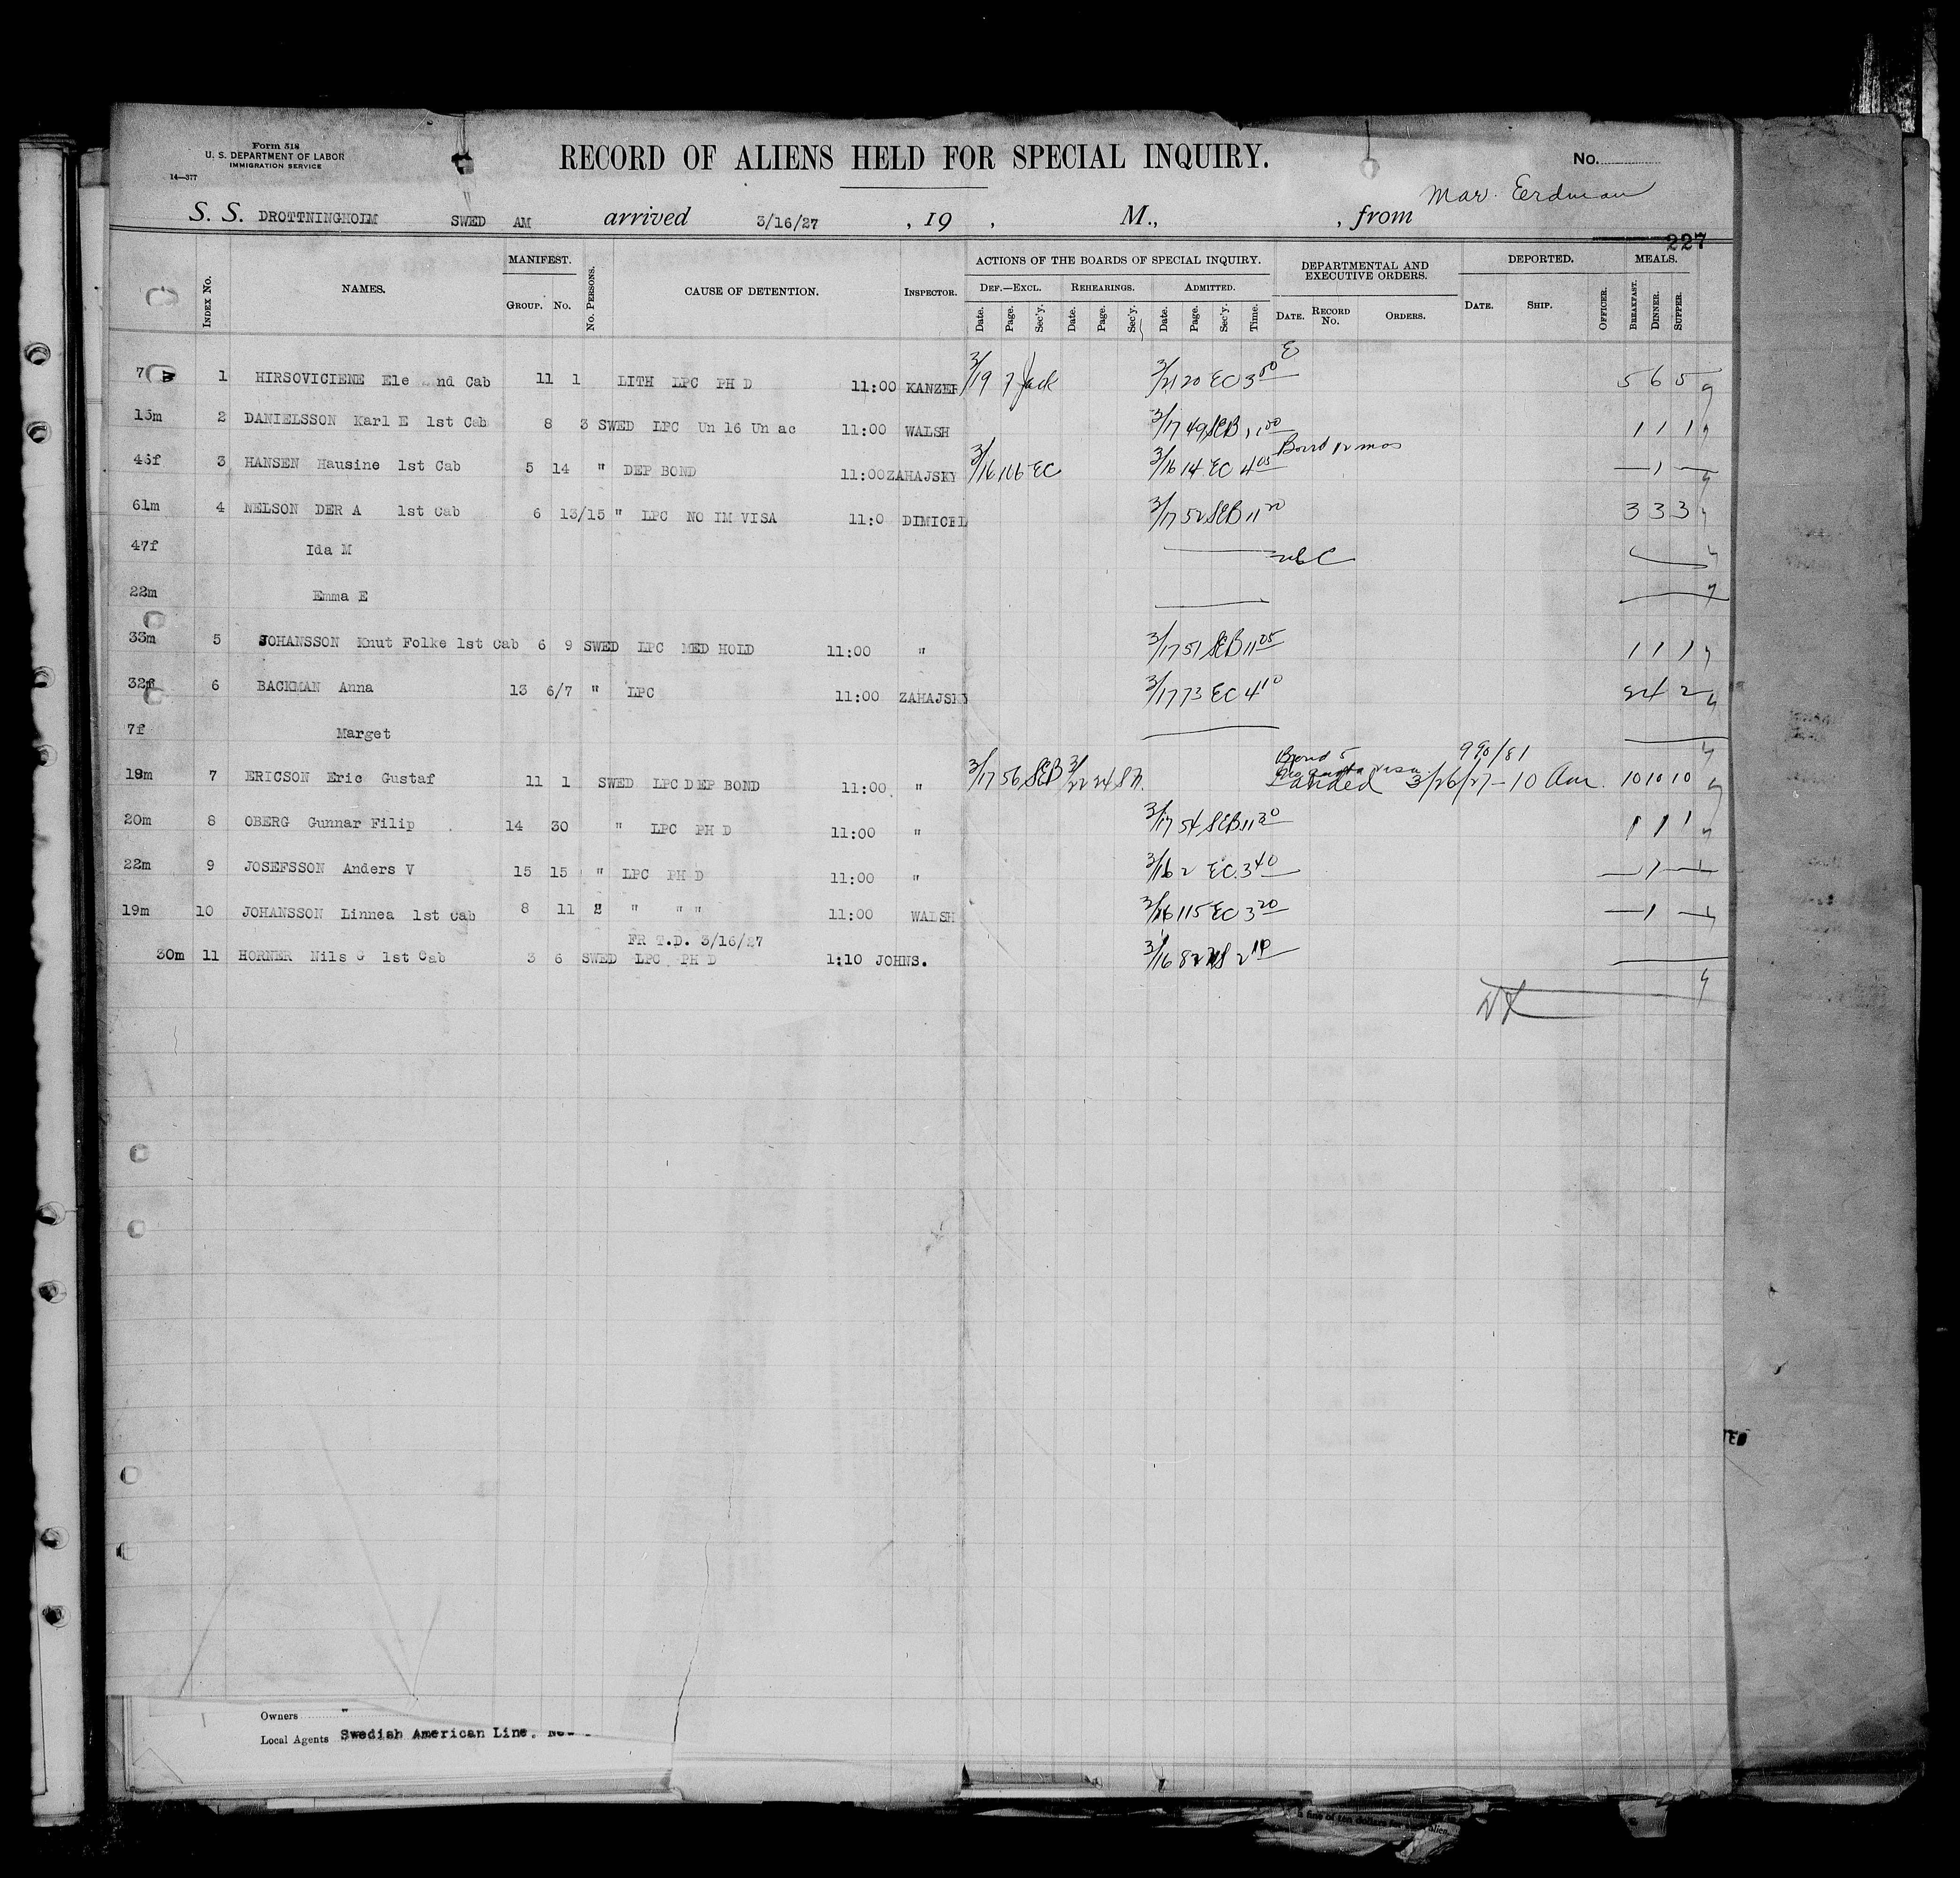 Form 518
U. S. DEPARTMENT OF LABOR
IMMIGRATION SERVICE
14—377
RECORD OF ALIENS HELD FOR SPECIAL INQUIRY.
No.
Mar. Eerdman
S. S. DROTTNINGHOLM SWED AM arrived 3/16/27 , 19 , M., , from
227
Index No. NAMES. MANIFEST. Group. No. No. Persons. CAUSE OF DETENTION. Inspector. ACTIONS OF THE BOARDS OF SPECIAL INQUIRY. DEPARTMENTAL AND EXECUTIVE ORDERS. DEPORTED. MEALS.
Def.—Excl. Rehearings. Admitted.
Date. Page. Sec'y. Date. Page. Sec'y. Date. Page. Sec'y. Time. Date. Record No. Orders. Date. Ship. Officer. Breakfast. Dinner. Supper.
7 1 HIRSOVICIENE Ele nd Cab 11 1 LITH LPC PH D 11:00 KANZER 3/19 7 Jack 3/21 20 EC 3 00 5 6 5
15m 2 DANIELSSON Karl E 1st Cab 8 3 SWED LPC Un 16 Un ac 11:00 WALSH 3/17 49 SEB 1 1 1
45f 3 HANSEN Hausine 1st Cab 5 14 " DEP BOND 11:00 ZAHAJSKY 3/16 106 EC 3/16 14 EC 4 05 Bond 12 mos — 1 —
61m 4 NELSON DER A 1st Cab 6 13/15 " LPC NO IM VISA 11:0 DIMICEL 3/17 52 SEB 11 20 3 3 3
47f Ida M
22m Emma E
33m 5 JOHANSSON Knut Folke 1st Cab 6 9 SWED LPC MED HOLD 11:00 " 3/17 51 SEB 11 25 1 1 1
32f 6 BACKMAN Anna 13 6/7 " LPC 11:00 ZAHAJSKY 3/17 73 EC 4 10 2 4 2
7f Marget
Bond 5 990/81
19m 7 ERICSON Eric Gustaf 11 1 SWED LPC DEP BOND 11:00 " 3/17 56 SEB 3/22 24 Landed 3/26/27 - 10 Am. 10 10 10
20m 8 OBERG Gunnar Filip 14 30 " LPC PH D 11:00 " 3/17 54 SEB 11 30 1 1 1
22m 9 JOSEFSSON Anders V 15 15 " LPC PH D 11:00 " 3/16 2 EC 3 40 — 1 —
19m 10 JOHANSSON Linnea 1st Cab 8 11 " " " 11:00 WALSH 3/16 115 EC 3 20 — 1 —
FR T.D. 3/16/27
30m 11 HORNER Nils G 1st Cab 3 6 SWED LPC PH D 1:10 JOHNS. 3/16 82 2 10
Owners "
Local Agents Swedish American Line, New
TED
a fine of ten dollars for